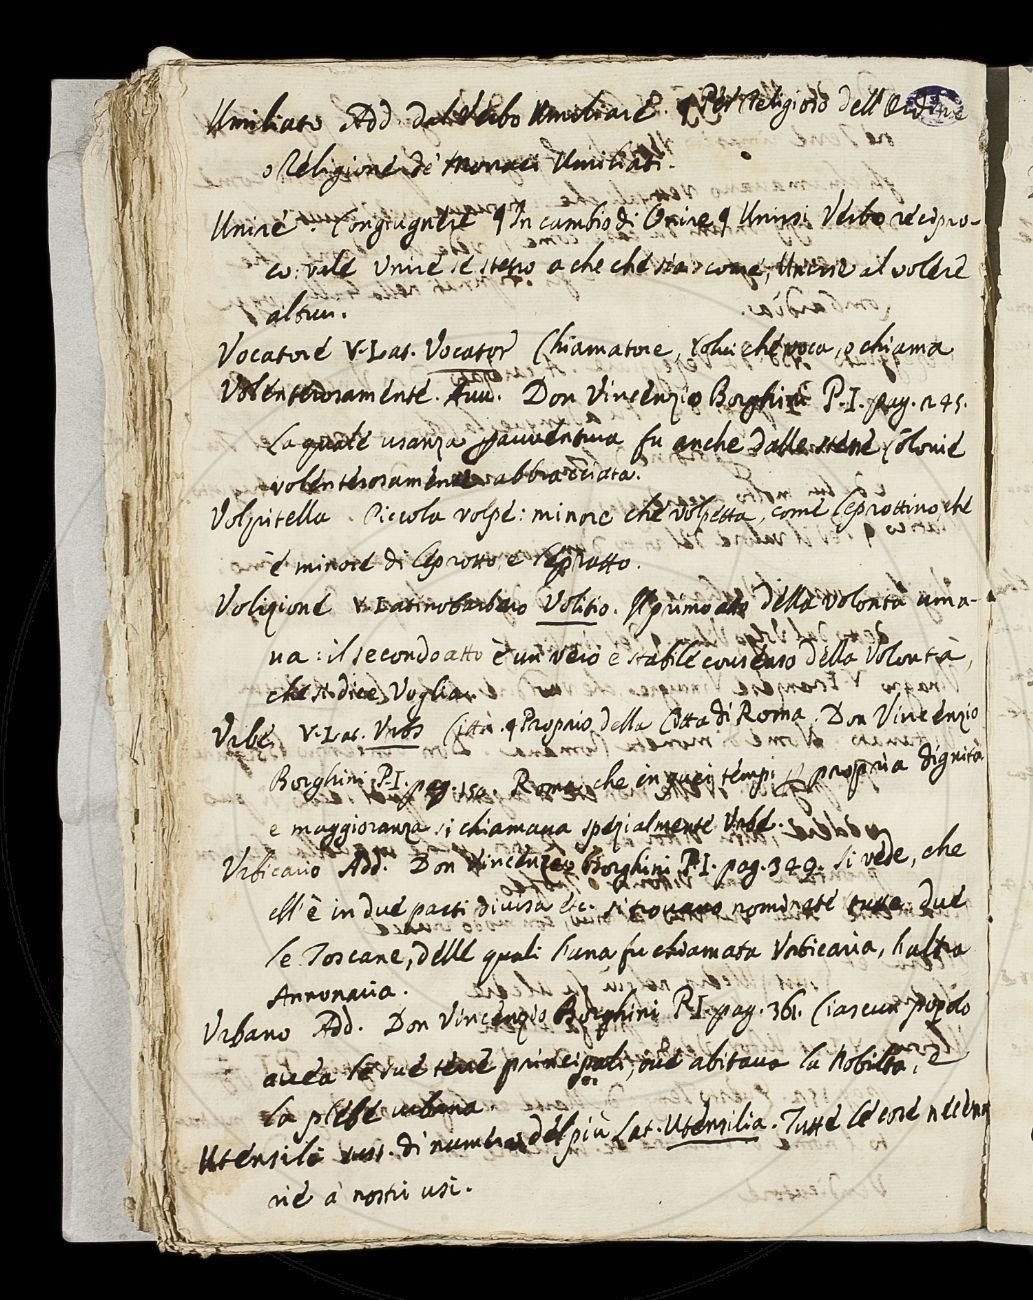 Umiliato Add. dal Verbo Umiliare. § Per Religioso dell'Ordine
o Religione de' Monaci Umiliati.
Unire. Congiugnere § In cambio di Onire § Unirsi Verbo recipro-
co: vale Unire se stesso a che che sia: come, Unirsi al volere
altrui.
Vocatore V. Lat. Vocator Chiamatore, Colui che voca, o chiama
Volenterosamente. Avv. Don Vincenzio Borghini P. I. pag. 245.
La quale usanza fu anche dalle stesse Colonie
volenterosamente abbracciata.
Volpitella. Piccola volpe: minore che volpetta, come Leprottino che
è minore di Leprotto, e Lepratto.
Volizione V. Latinobarbaro Volitio. Il primo atto della volontà uma-
na: il secondo atto è un vero e stabile consenso della Volontà,
che si dice Voglia.
Urbe V. Lat. Urbs Città. § Proprio della Città di Roma. Don Vincenzio
Borghini P. I. pag. 150. Roma, che in quei tempi p propria dignità
e maggioranza si chiamava spezialmente Urbe.
Urbicario Add. Don Vincenzio Borghini P. I. pag. 349. Si vede, che
ell'è in due parti divisa etc. si trovano nominate tutte due
le Toscane, delle quali l'una fu chiamata Urbicaria, l'altra
Annonaria.
Urbano Add. Don Vincenzio Borghini P. I. pag. 361. Ciascun popolo
avea le sue terre principali, ove abitava la Nobiltà, e
la plebe urbana
Utensile sust. di numero del più Lat. Utensilia. Tutte le cose necessa
rie a' nostri usi.